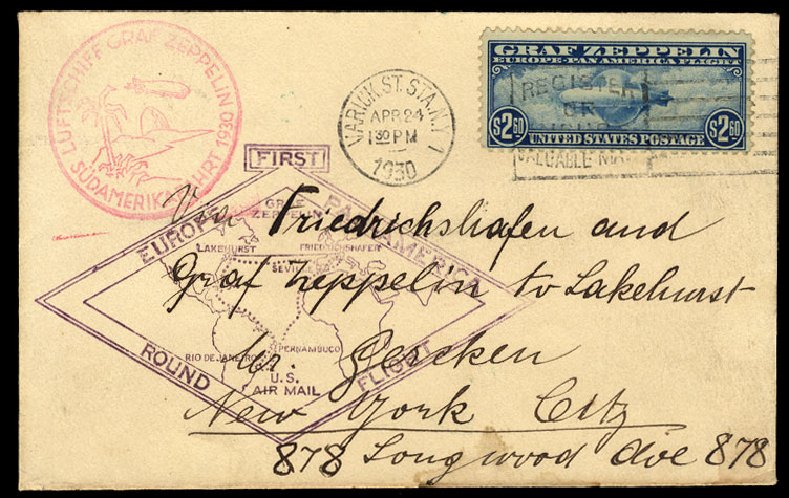 LUFTSCHIFF GRAF ZEPPELIN
SÜDAMERIKAFAHRT 1930
VARICK ST. STA. N.Y.
APR 24
1 30 PM
1930
1
GRAF ZEPPELIN
EUROPE-PAN AMERICA FLIGHT
$2.60 $2.60
UNITED STATES POSTAGE
REGISTER
OR
VALUABLE
FIRST
EUROPE PAN-AMERICA
ROUND FLIGHT
GRAF
ZEPPELIN
LAKEHURST FRIEDRICHSHAFEN
SEVILLE
RIO DE JANEIRO PERNAMBUCO
U.S.
AIR MAIL
Via Friedrichshafen and
Graf Zeppelin to Lakehurst
Gercken
New York City
878 Longwood Ave 878